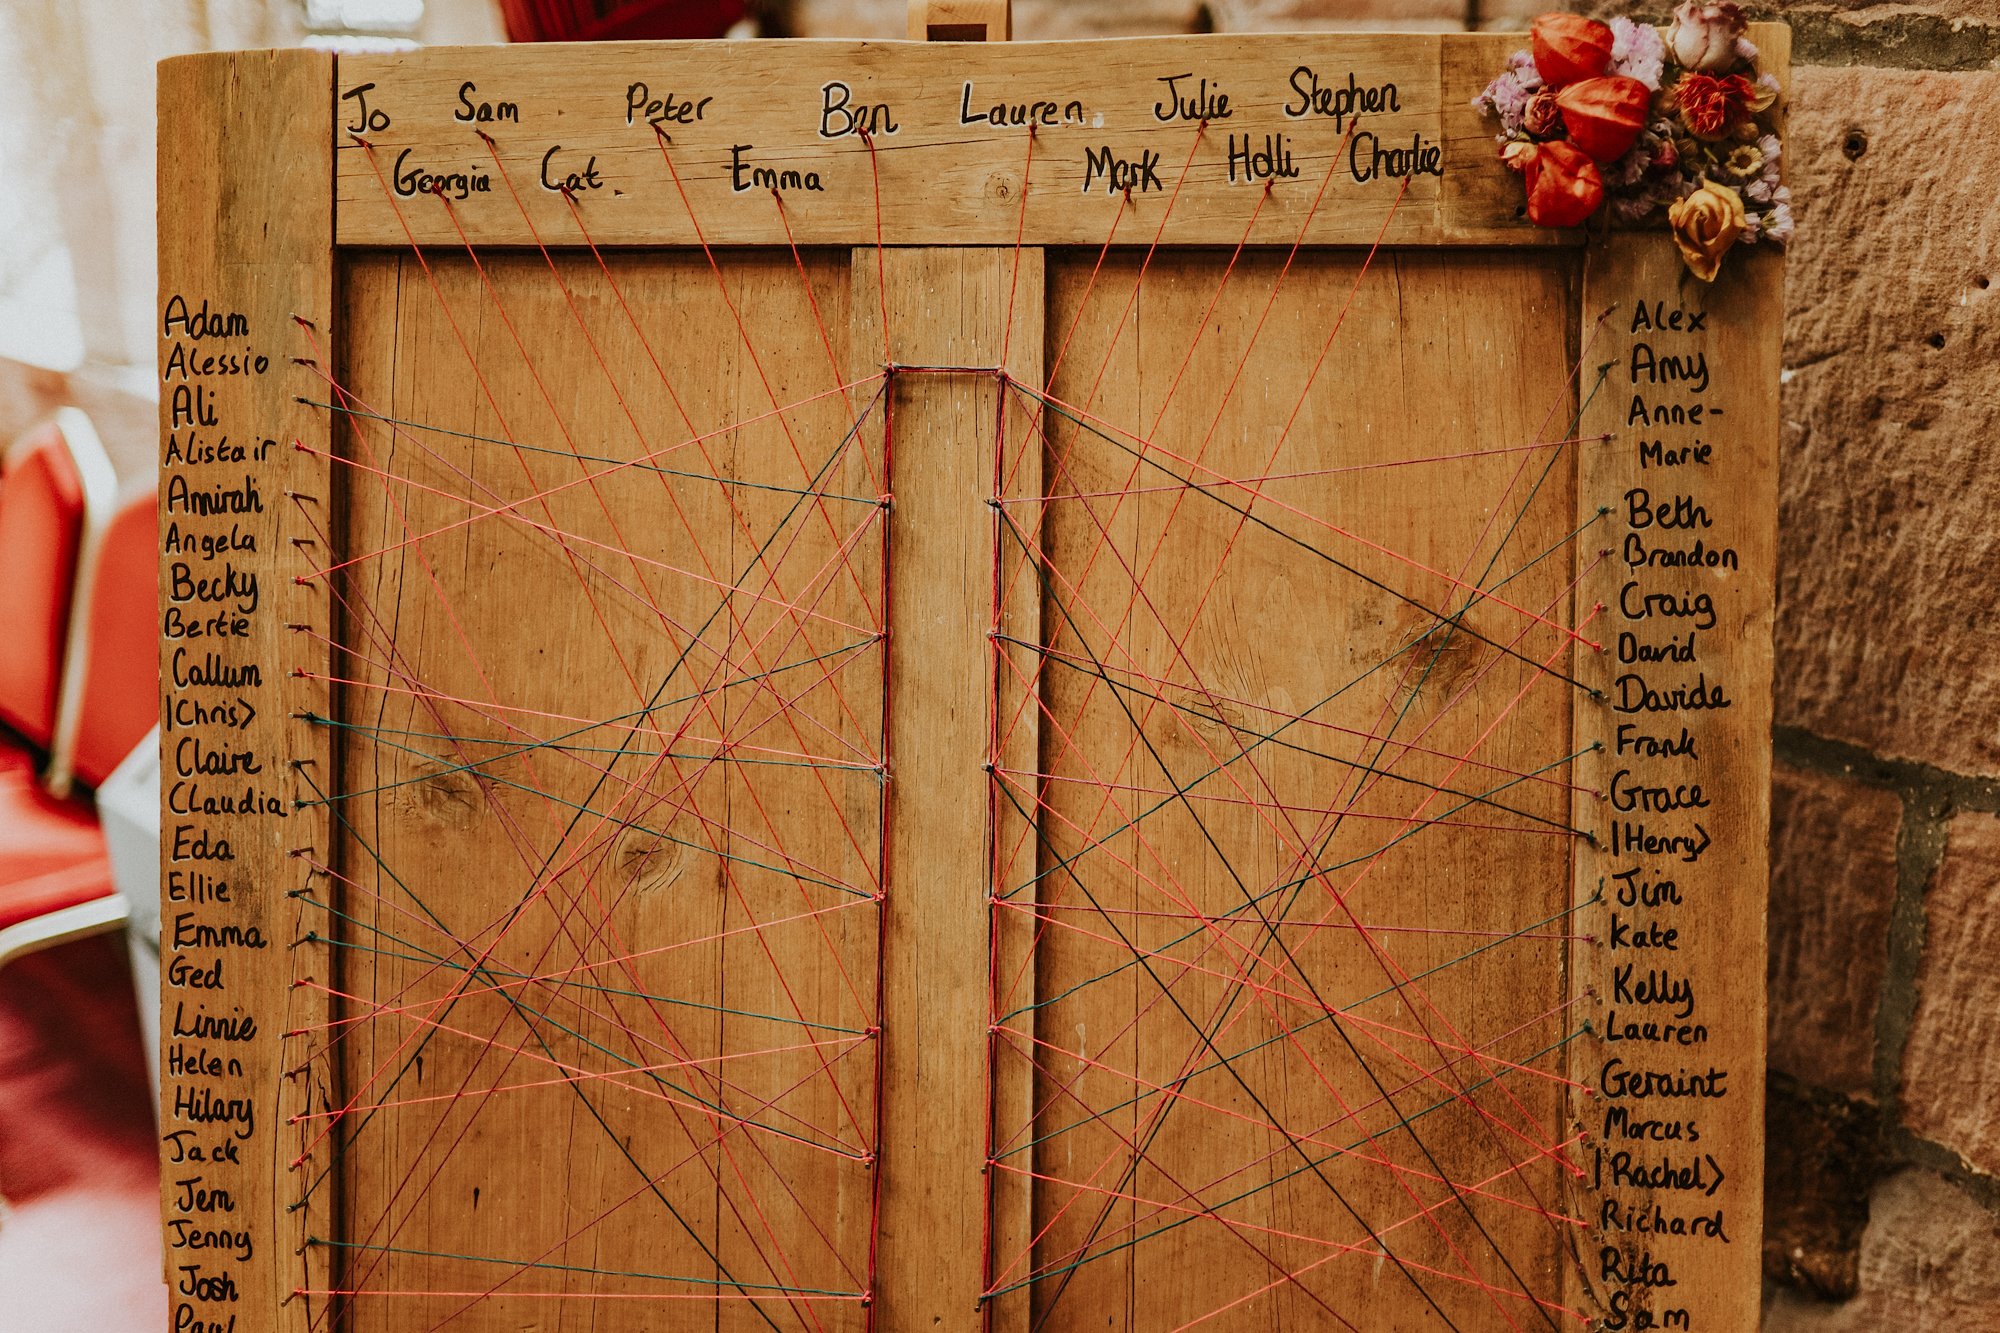 Jo Sam Peter Ben Lauren Julie Stephen
Georgia Cat Emma Mark Holli Charlie
Adam
Alessio
Ali
Alistair
Amirah
Angela
Becky
Bertie
Callum
|Chris>
Claire
Claudia
Eda
Ellie
Emma
Ged
Linnie
Helen
Hilary
Jack
Jem
Jenny
Josh
Paul
Alex
Amy
Anne-
Marie
Beth
Brandon
Craig
David
Davide
Frank
Grace
|Henry>
Jim
Kate
Kelly
Lauren
Geraint
Marcus
|Rachel>
Richard
Rita
Sam